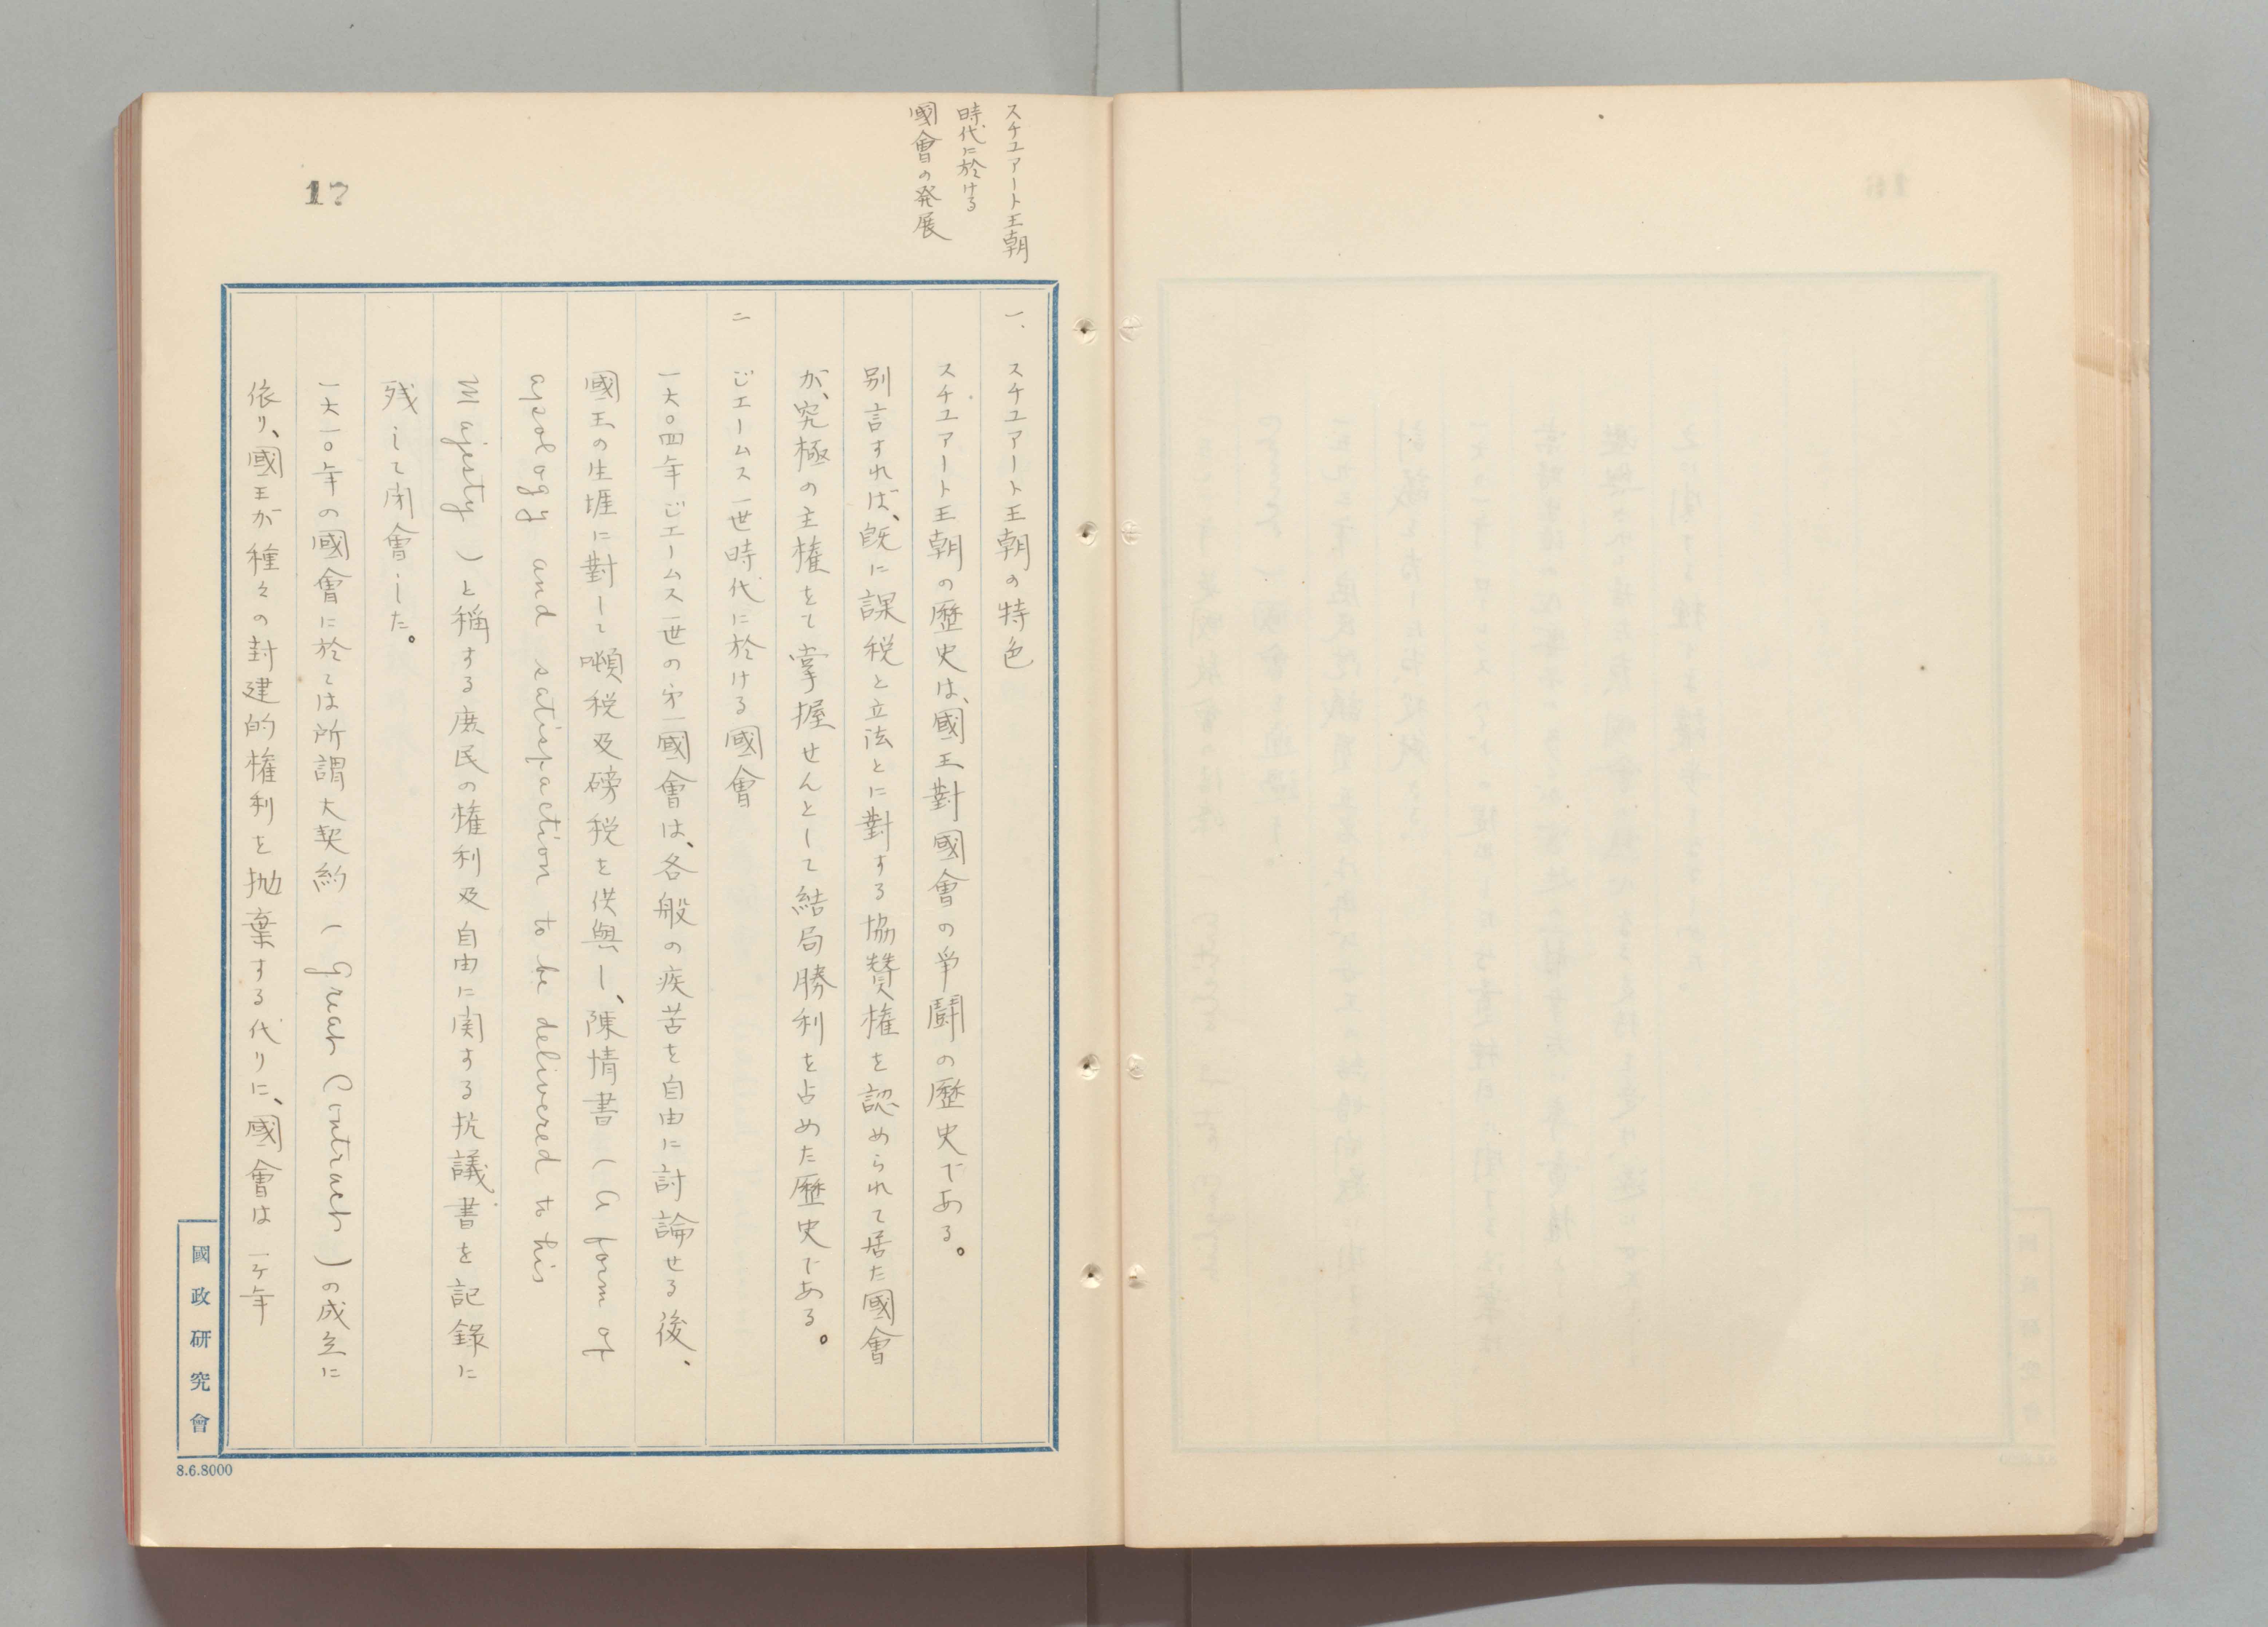 スチユアート王朝
時代に於ける
國會の発展
17
一、スチユアート王朝の特色
スチユアート王朝の歴史は、國王對國會の爭鬪の歴史である。
別言すれば、既に課税と立法とに對する協賛権を認められて居た國會
が、究極の主権をて掌握せんとして結局勝利を占めた歴史である。
二 ジエームス一世時代に於ける國會
一六〇四年ジエームス一世の第一國會は、各般の疾苦を自由に討論せる後、
國王の生涯に對して噸税及磅税を供與し、陳情書(a form of
apology and satisfaction to be delivered to his
Majesty)と稱する庶民の権利及自由に関する抗議書を記録に
残して閉會した。
一六一〇年の國會に於ては所謂大契約(Great Contract)の成立に
依り、國王が種々の封建的権利を抛棄する代りに、國會は一ケ年
國政研究會
8.6.8000